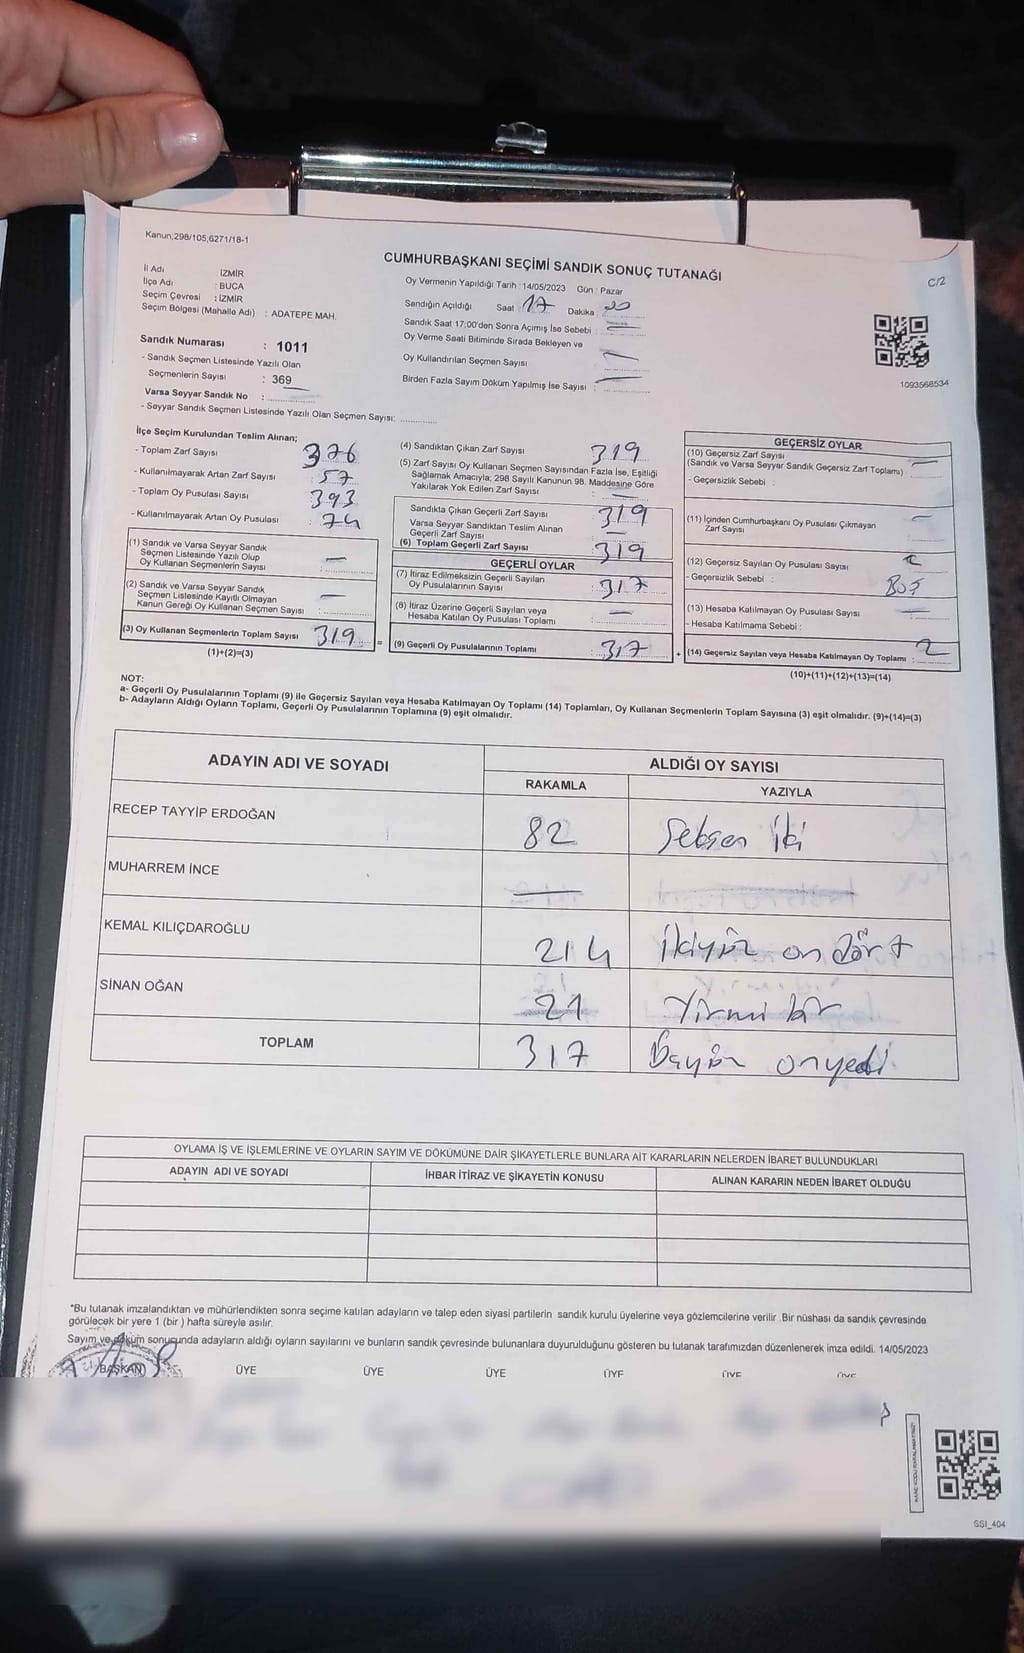 Kanun;298/105;6271/18-1
CUMHURBAŞKANI SEÇİMİ SANDIK SONUÇ TUTANAĞI
C/2
İl Adı : İZMİR
İlçe Adı : BUCA
Seçim Çevresi : İZMİR
Seçim Bölgesi (Mahalle Adı) : ADATEPE MAH.
Oy Vermenin Yapıldığı Tarih : 14/05/2023 Gün : Pazar
Sandığın Açıldığı Saat : 17 Dakika : 20
Sandık Saat 17:00'den Sonra Açımış İse Sebebi :
Oy Verme Saati Bitiminde Sırada Bekleyen ve
Oy Kullandırılan Seçmen Sayısı
Birden Fazla Sayım Döküm Yapılmış İse Sayısı :
1093568534
Sandık Numarası : 1011
- Sandık Seçmen Listesinde Yazılı Olan
Seçmenlerin Sayısı : 369
Varsa Seyyar Sandık No :
- Seyyar Sandık Seçmen Listesinde Yazılı Olan Seçmen Sayısı:
İlçe Seçim Kurulundan Teslim Alınan;
- Toplam Zarf Sayısı 376
- Kullanılmayarak Artan Zarf Sayısı : 57
- Toplam Oy Pusulası Sayısı 393
- Kullanılmayarak Artan Oy Pusulası : 74
(1) Sandık ve Varsa Seyyar Sandık
Seçmen Listesinde Yazılı Olup
Oy Kullanan Seçmenlerin Sayısı : —
(2) Sandık ve Varsa Seyyar Sandık
Seçmen Listesinde Kayıtlı Olmayan
Kanun Gereği Oy Kullanan Seçmen Sayısı : —
(3) Oy Kullanan Seçmenlerin Toplam Sayısı 319
(1)+(2)=(3)
(4) Sandıktan Çıkan Zarf Sayısı 319
(5) Zarf Sayısı Oy Kullanan Seçmen Sayısından Fazla İse, Eşitliği
Sağlamak Amacıyla; 298 Sayılı Kanunun 98. Maddesine Göre
Yakılarak Yok Edilen Zarf Sayısı : —
Sandıkta Çıkan Geçerli Zarf Sayısı : 319
Varsa Seyyar Sandıktan Teslim Alınan
Geçerli Zarf Sayısı : —
(6) Toplam Geçerli Zarf Sayısı : 319
GEÇERLİ OYLAR
(7) İtiraz Edilmeksizin Geçerli Sayılan
Oy Pusulalarının Sayısı : 317
(8) İtiraz Üzerine Geçerli Sayılan veya
Hesaba Katılan Oy Pusulası Toplamı : —
= (9) Geçerli Oy Pusulalarının Toplamı : 317
GEÇERSİZ OYLAR
(10) Geçersiz Zarf Sayısı
(Sandık ve Varsa Seyyar Sandık Geçersiz Zarf Toplamı) —
- Geçersizlik Sebebi :
(11) İçinden Cumhurbaşkanı Oy Pusulası Çıkmayan
Zarf Sayısı —
(12) Geçersiz Sayılan Oy Pusulası Sayısı 2
- Geçersizlik Sebebi : Boş
(13) Hesaba Katılmayan Oy Pusulası Sayısı —
- Hesaba Katılmama Sebebi :
+ (14) Geçersiz Sayılan veya Hesaba Katılmayan Oy Toplamı : 2
(10)+(11)+(12)+(13)=(14)
NOT:
a- Geçerli Oy Pusulalarının Toplamı (9) ile Geçersiz Sayılan veya Hesaba Katılmayan Oy Toplamı (14) Toplamları, Oy Kullanan Seçmenlerin Toplam Sayısına (3) eşit olmalıdır. (9)+(14)=(3)
b- Adayların Aldığı Oyların Toplamı, Geçerli Oy Pusulalarının Toplamına (9) eşit olmalıdır.
ADAYIN ADI VE SOYADI ALDIĞI OY SAYISI
RAKAMLA YAZIYLA
RECEP TAYYİP ERDOĞAN 82 Seksen iki
MUHARREM İNCE —
KEMAL KILIÇDAROĞLU 214 İkiyüz on dört
SİNAN OĞAN 21 Yirmi bir
TOPLAM 317 Üçyüz onyedi
OYLAMA İŞ VE İŞLEMLERİNE VE OYLARIN SAYIM VE DÖKÜMÜNE DAİR ŞİKAYETLERLE BUNLARA AİT KARARLARIN NELERDEN İBARET BULUNDUKLARI
ADAYIN ADI VE SOYADI İHBAR İTİRAZ VE ŞİKAYETİN KONUSU ALINAN KARARIN NEDEN İBARET OLDUĞU
*Bu tutanak imzalandıktan ve mühürlendikten sonra seçime katılan adayların ve talep eden siyasi partilerin sandık kurulu üyelerine veya gözlemcilerine verilir .Bir nüshası da sandık çevresinde
görülecek bir yere 1 (bir ) hafta süreyle asılır.
Sayım ve döküm sonucunda adayların aldığı oyların sayılarını ve bunların sandık çevresinde bulunanlara duyurulduğunu gösteren bu tutanak tarafımızdan düzenlenerek imza edildi. 14/05/2023
BAŞKAN ÜYE ÜYE ÜYE ÜYE ÜYE ÜYE
SSI_404